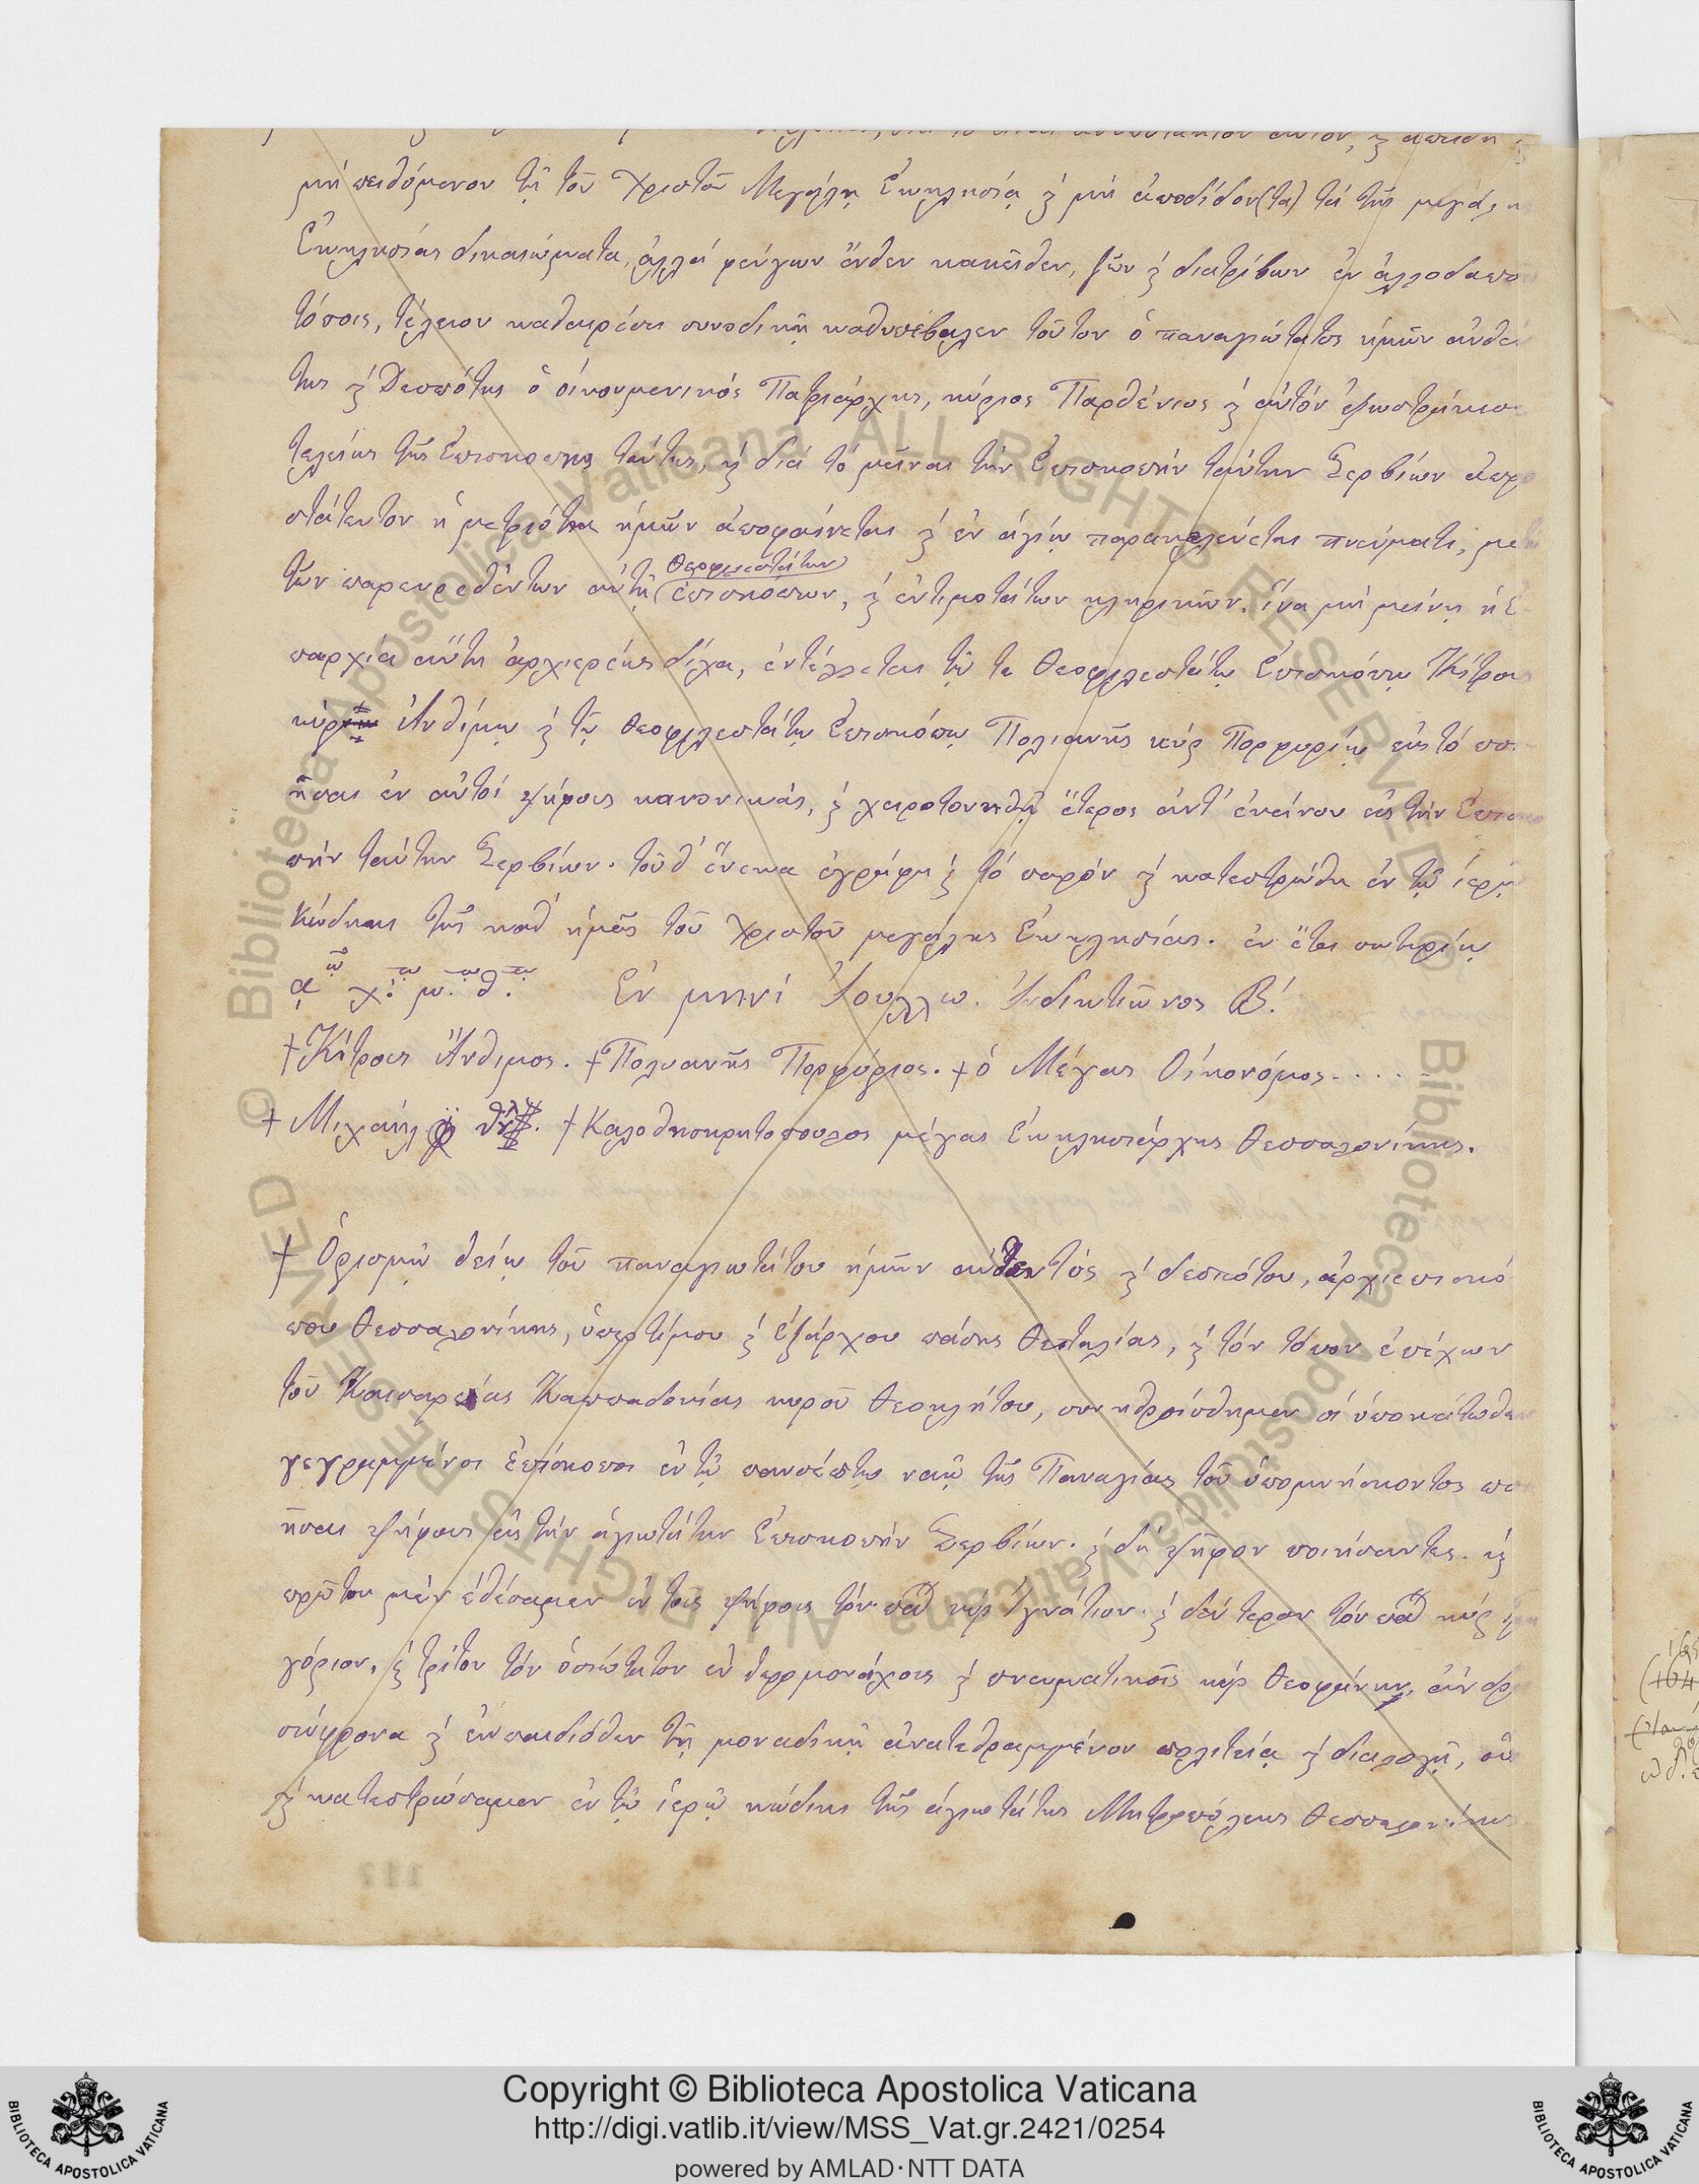 μὴ πειθόμενον τῇ τοῦ Χριστοῦ Μεγάλῃ Ἐκκλησίᾳ ϗ μὴ ἀποδίδον(τα) τὰ τῆς μεγάλης
Ἐκκλησίας δικαιώματα, ἀλλὰ φεύγων ἔνθεν κακεῖθεν, ζῶν ϗ διατρίβων ἐν ἀλλοδαπο
τόποις, τέλειον καθαιρέσει συνοδικῇ καθυπέβαλεν τοῦτον ὁ παναγιώτατος ἡμῶν αὐθέν
της ϗ Δεσπότης ὁ οἰκουμενικὸς Πατριάρχης, κύριος Παρθένιος ϗ αὐτὸν ἐξωστράκισε
τελείως τῆς Ἐπισκοπῆς ταύτης, ϗ διὰ τὸ μεῖναι τὴν Ἐπισκοπὴν ταύτην Σερβίων ἀπρο
στάτευτον ἡ μετριότης ἡμῶν ἀποφαίνεται ϗ ἐν ἁγίῳ παρακελεύεται πνεύματι, μετὰ
θεοφιλεστάτων
τῶν παρευρεθέντων αὐτῇ ἐπισκόπων, ϗ ἐντιμοτάτων κληρικῶν. ἵνα μὴ μείνῃ ἡ ἐ
παρχία αὕτη ἀρχιερέως δίχα, ἐντέλλεται τῷ τε θεοφιλεστάτῳ Ἐπισκόπῳ Κίτρους
κὺρ Ἀνθίμῳ ϗ τῷ θεοφιλεστάτῳ Ἐπισκόπῳ Πολιανῆς κὺρ Πορφυρίῳ εἰς τὸ ποι
ῆσαι ἐν αὐτοῖ ψήφους κανονικάς, ϗ χειροτονηθῇ ἕτερος ἀντ' ἐκείνου εἰς τὴν Ἐπισκο
πὴν ταύτην Σερβίων. τοῦθ' ἕνεκα ἐγράφη ϗ τὸ παρὸν ϗ κατεστρώθη ἐν τῷ ἱερῷ
Κώδηκι τῆς καθ' ἡμᾶς τοῦ Χριστοῦ μεγάλης Ἐκκλησίας. ἐν ἔτει σωτηρίῳ
αῳ χ. μ. θ. Ἐν μηνὶ Ἰουλλιω. Ἰνδικτιῶνος Β.
+ Κίτρους Ἄνθιμος. + Πολυανῆς Πορφύριος. + ὁ Μέγας Οἰκονόμος.....
+ Μιχαὴλ + Καλοθησκρητοπουλος μέγας Ἐκκλησιάρχης Θεσσαλονίκης.
+ Ὁρισμῷ θείῳ τοῦ παναγιωτάτου ἡμῶν αὐθεντὸς ϗ δεσπότου, ἀρχιεπισκό
που Θεσσαλονίκης, ὑπερτίμου ϗ ἐξάρχου πάσης Θετταλίας, ϗ τὸν τόπον ἐπέχων
τοῦ Καισαρείας Καππαδοκίας κυροῦ Θεοκλήτου, συνηθροίσθημεν οἱ ὑποκάτωθεν
γεγραμμένοι ἐπίσκοποι ἐν τῷ πανσέπτῳ ναῷ τῆς Παναγίας τοῦ ὑπομνήσκοντος ποι
ῆσαι ψήφους εἰς τὴν ἁγιωτάτην Ἐπισκοπὴν Σερβίων. ϗ δὴ ψῆφον ποιήσαντες. ϗ
πρῶτον μὲν ἐθέσαμεν ἐν ταῖς ψήφοις τὸν πα κὺρ Ἰγνάτιον. ϗ δεύτερον τὸν πα κὺρ Γρη
γόριον, ϗ τρίτον τὸν ὁσιώτατον ἐν ἱερομονάχοις ϗ πνευματικοῖς κὺρ Θεοφάνην, ἄνδρα
σώφρονα ϗ ἐκπαιδιόθεν τῇ μοναδικῇ ἀνατεθραμμένον πολιτείᾳ ϗ διαλογῇ, οὓς
ϗ κατεστρώσαμεν ἐν τῷ ἱερῷ κώδικι τῆς ἁγιωτάτης Μητροπόλεως Θεσσαλονίκης
Copyright © Biblioteca Apostolica Vaticana
http://digi.vatlib.it/view/MSS_Vat.gr.2421/0254
powered by AMLAD·NTT DATA